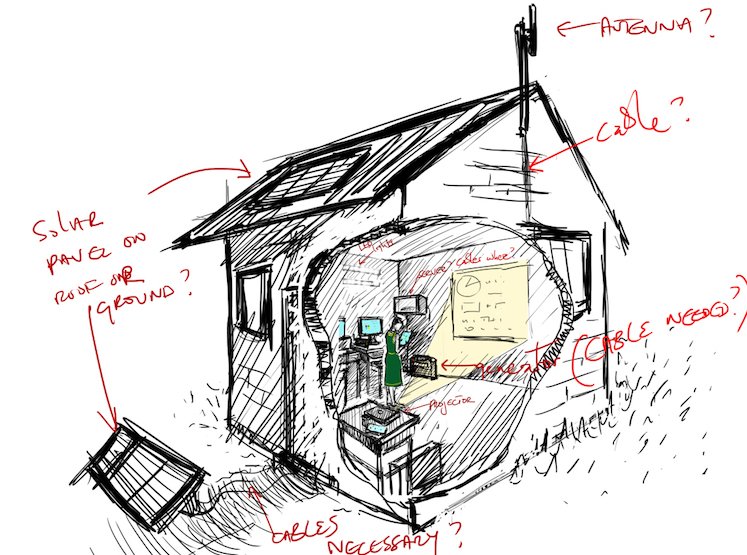 ANTENNA?
Cable?
SOLAR
PANEL ON
ROOF OR
GROUND?
LED
lights
server? Cables where?
generator (CABLE NEEDED?)
PROJECTOR
CABLES
NECESSARY?